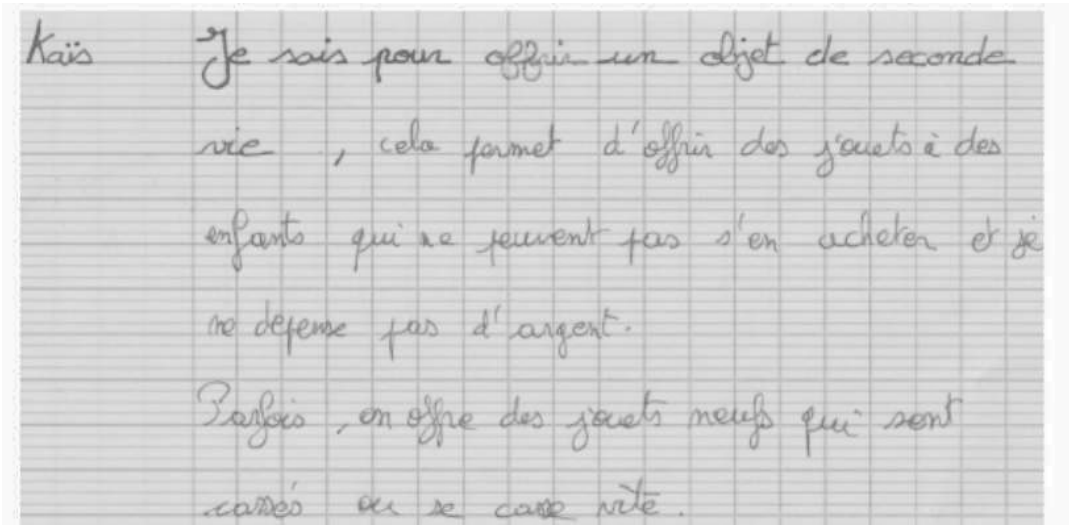 Kaïs Je sais pour offrir un objet de seconde
vie, cela permet d'offrir des jouets à des
enfants qui ne peuvent pas s'en acheter et je
ne dépense pas d'argent.
Parfois, on offre des jouets neufs qui sont
cassés ou se casse vite.